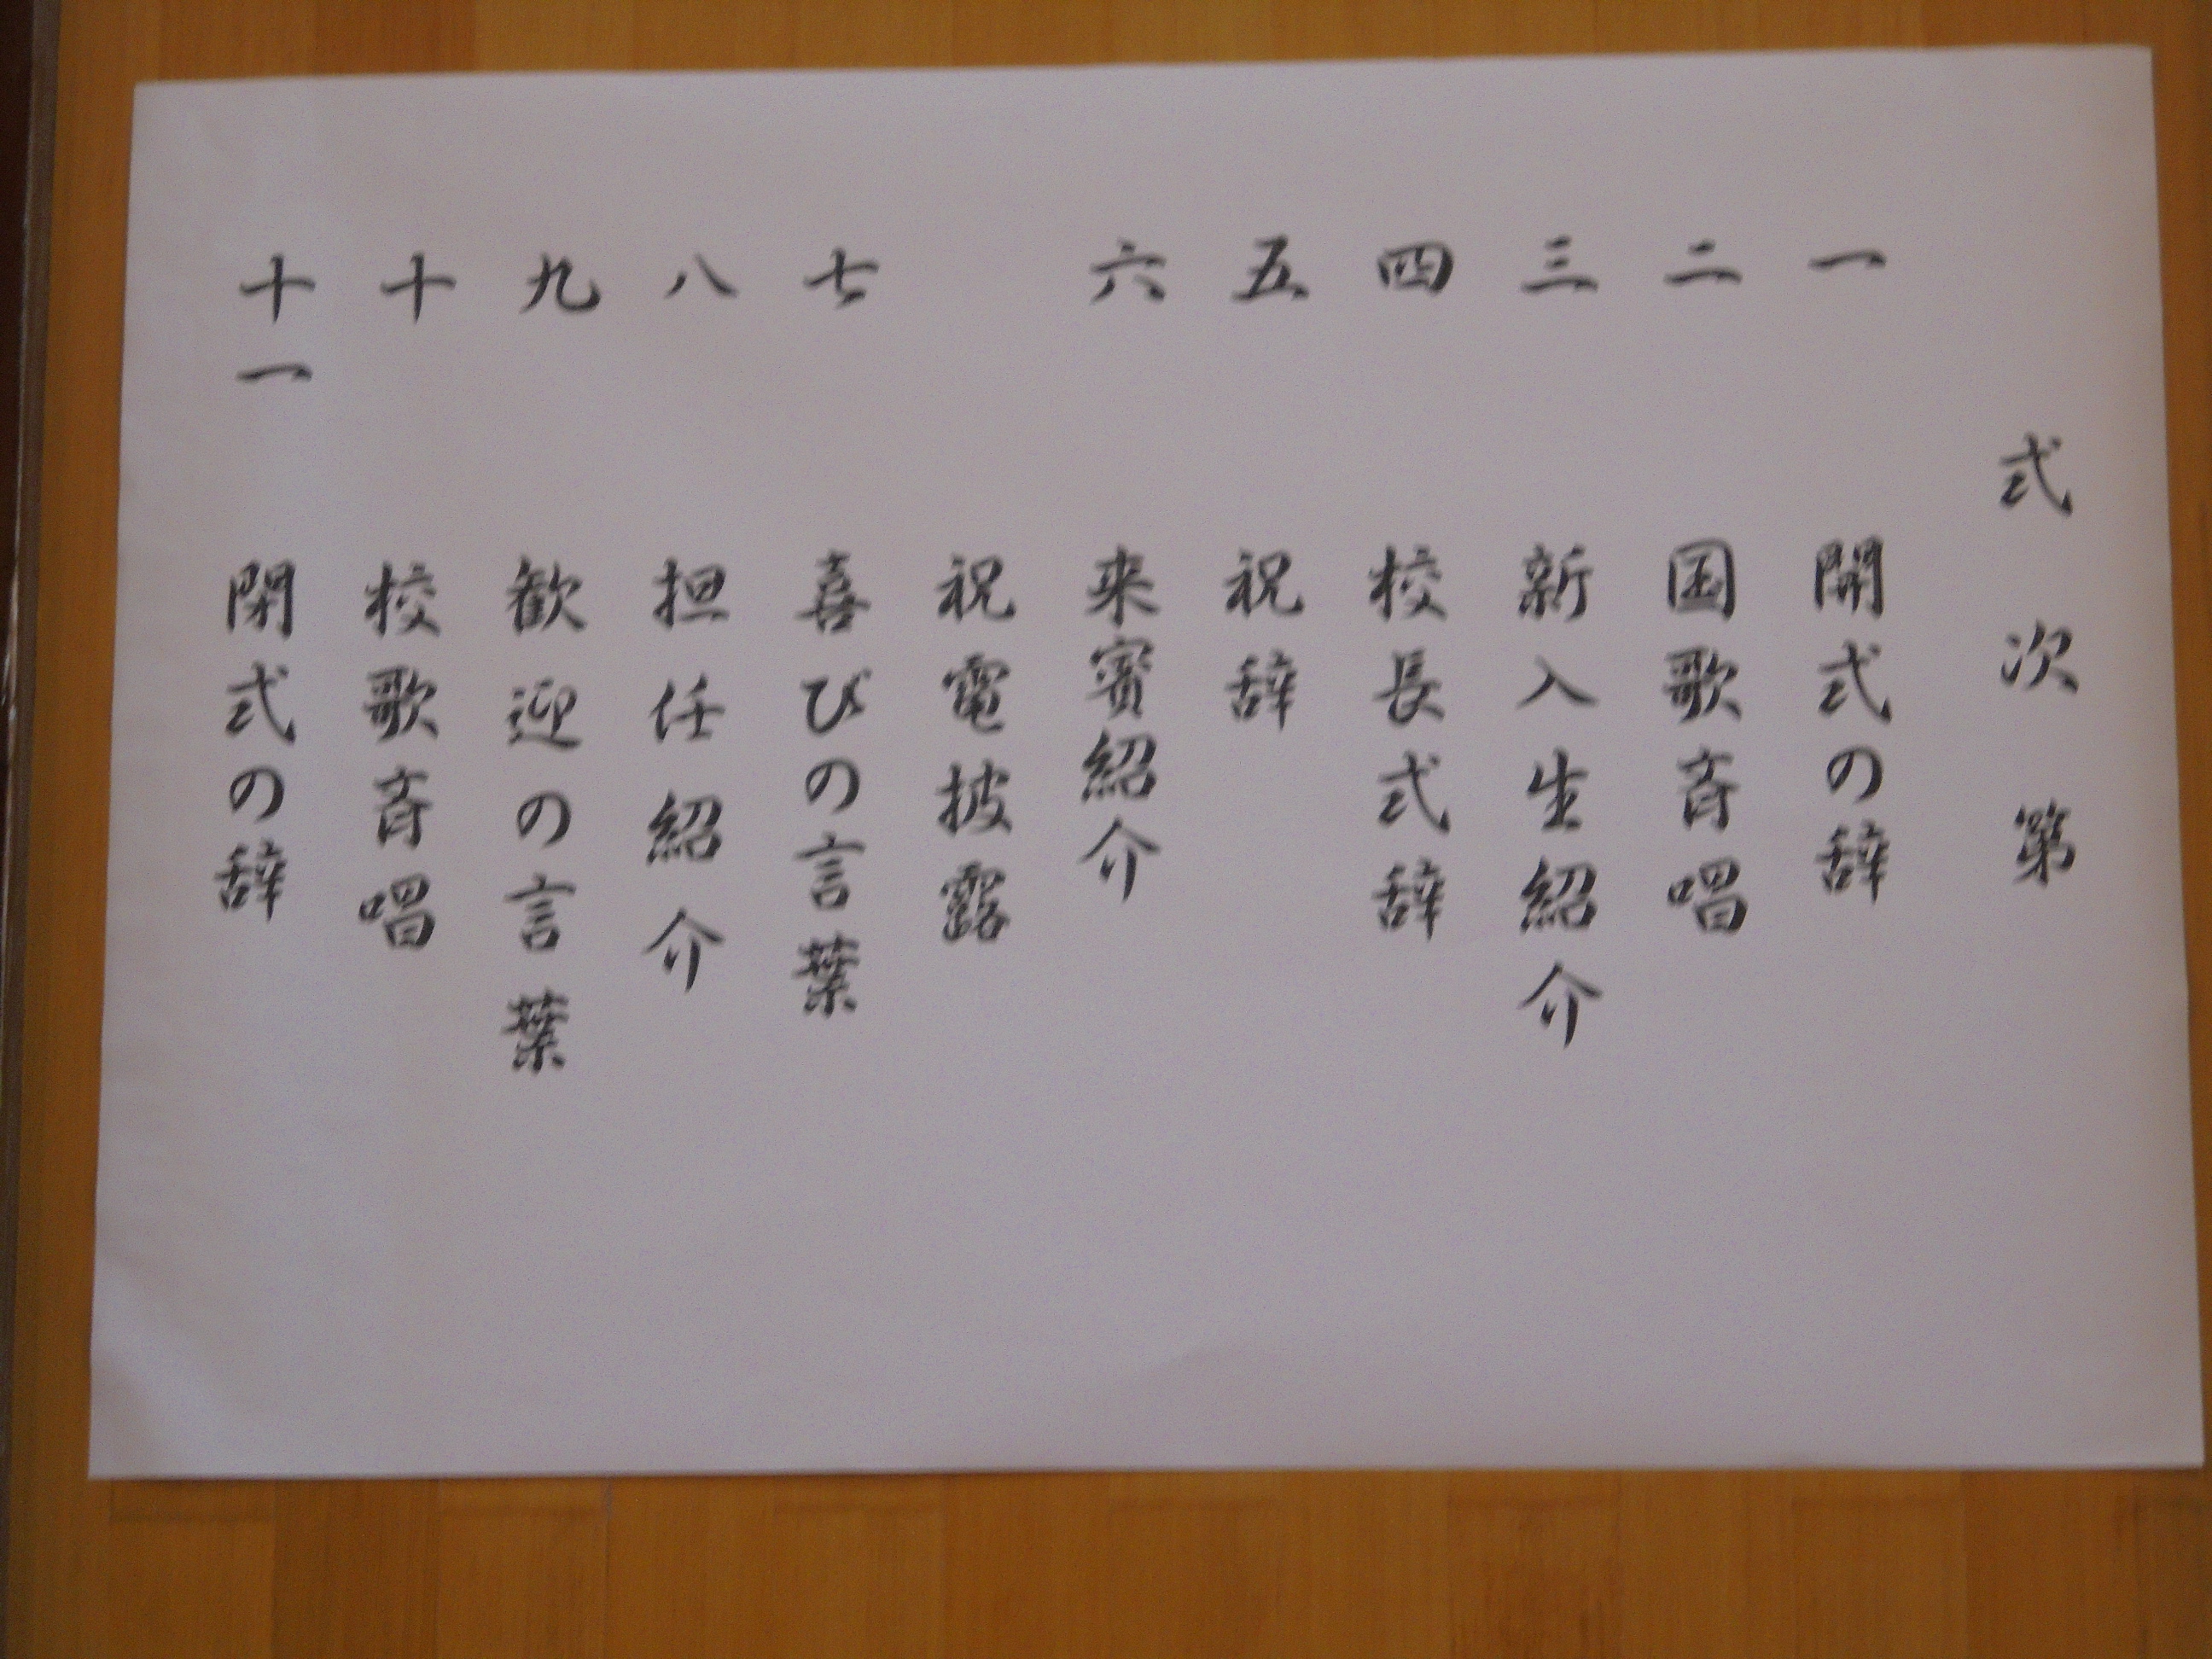 式次第
一 開式の辞
二 国歌斉唱
三 新入生紹介
四 校長式辞
五 祝辞
六 来賓紹介
祝電披露
七 喜びの言葉
八 担任紹介
九 歓迎の言葉
十 校歌斉唱
十一 閉式の辞